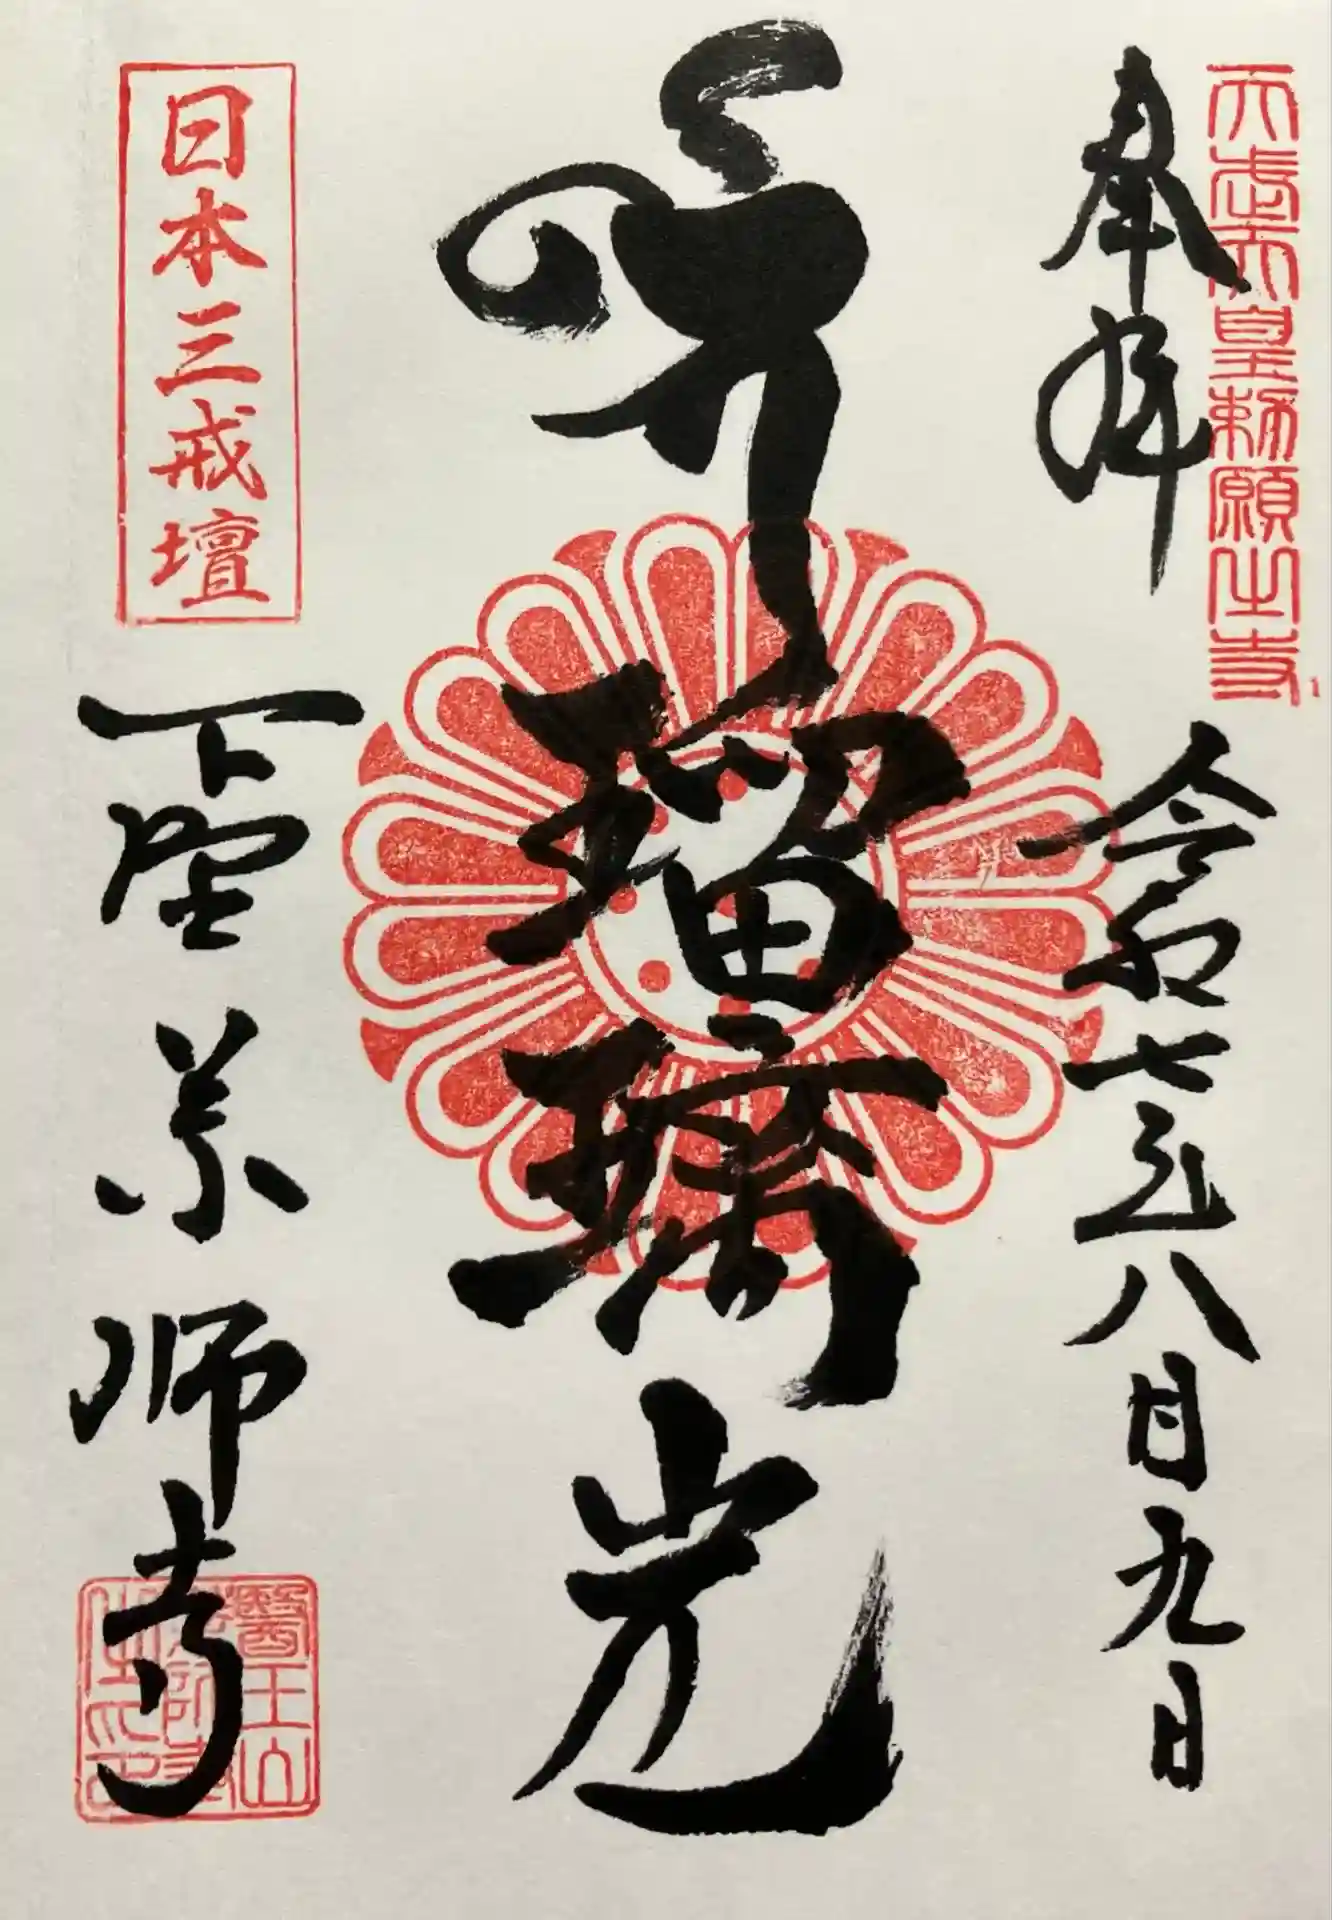 天武天皇勅願之寺
奉拝
令和七年八月九日
瑠璃光
日本三戒壇
下野薬師寺
醫王山
薬師寺
之印